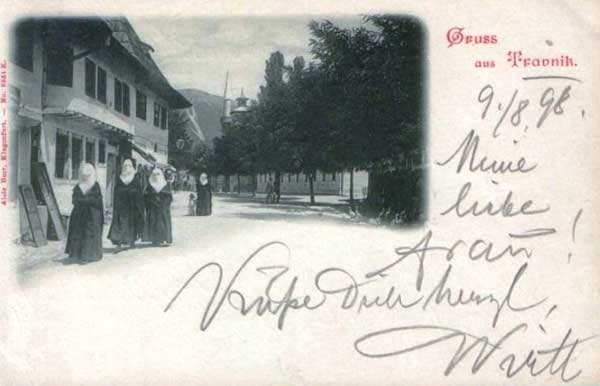 Gruss
aus Travnik.
9./8. 98.
Meine
liebe
Frau!
Küße Dich herzl,
Alois Beer, Klagenfurt. — No.